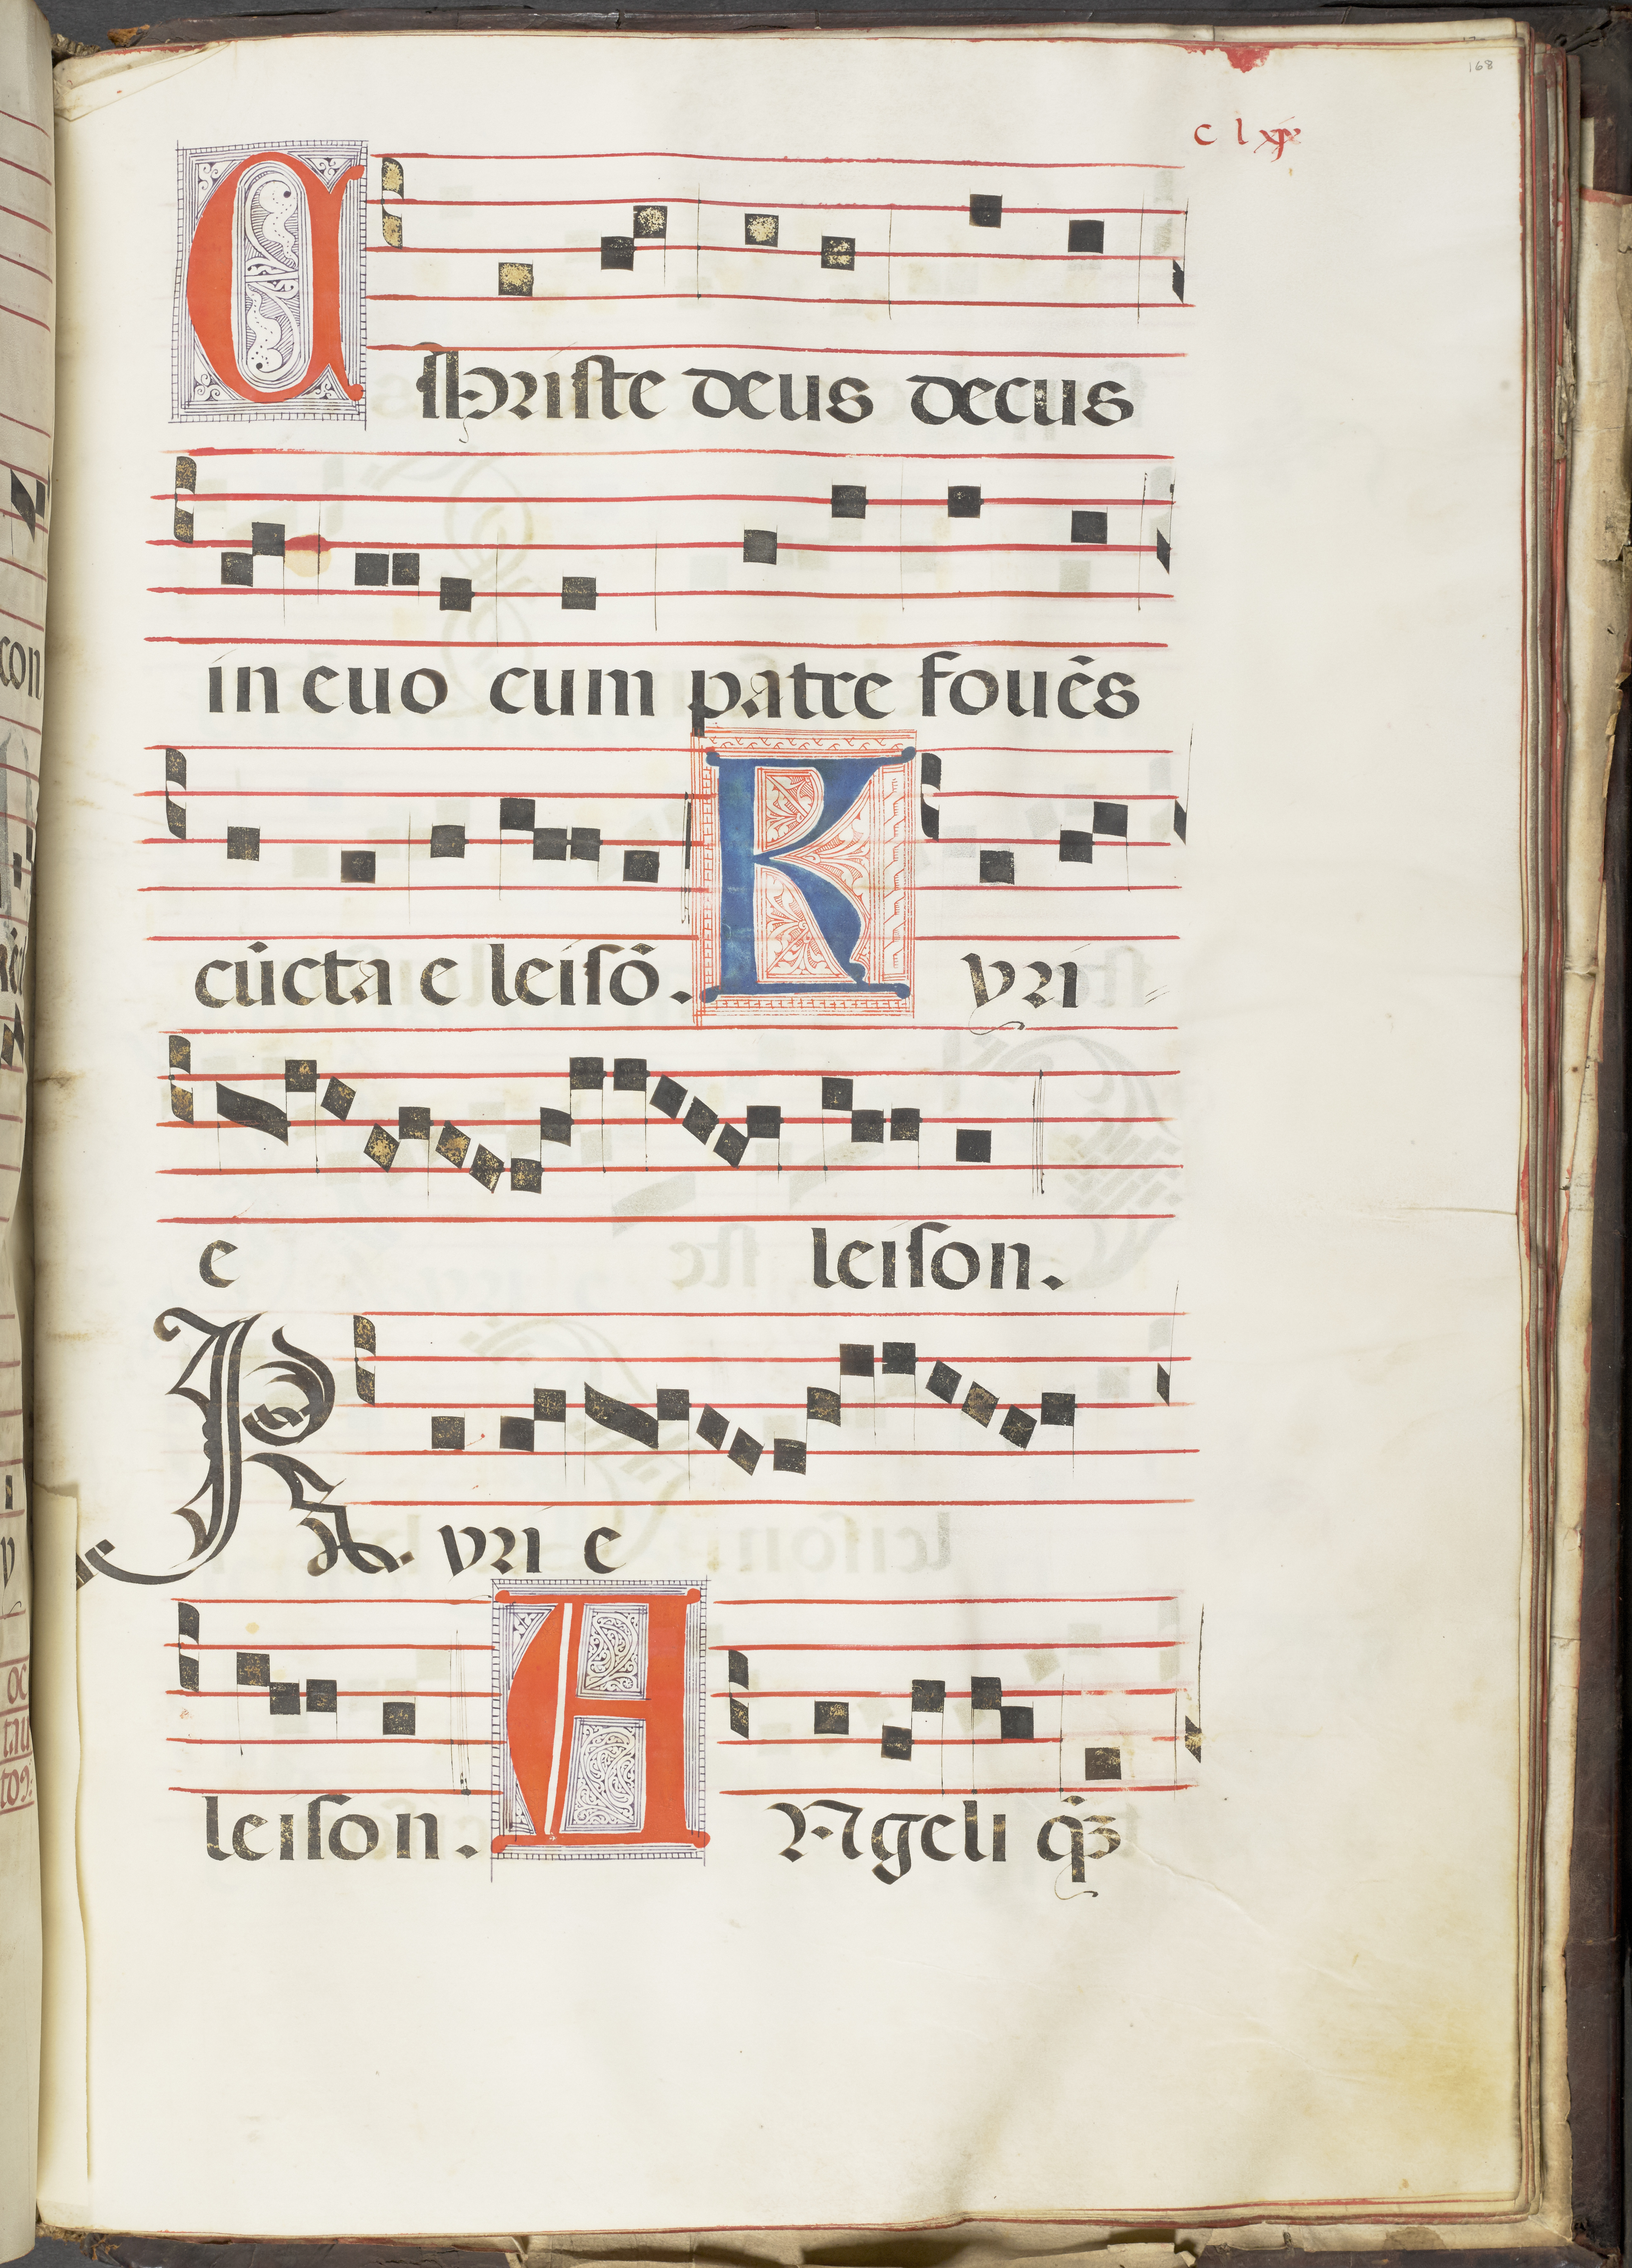 168
c l xx
Christe deus decus
in euo cum patre fouēs
cūcta e leisō. K yri
e leison.
K yri e
leison. A Ngeli qꝫ
con